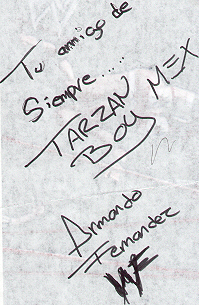 Tu amigo de
Siempre.....
TARZAN MEX
BOY
Armando
Fernandez